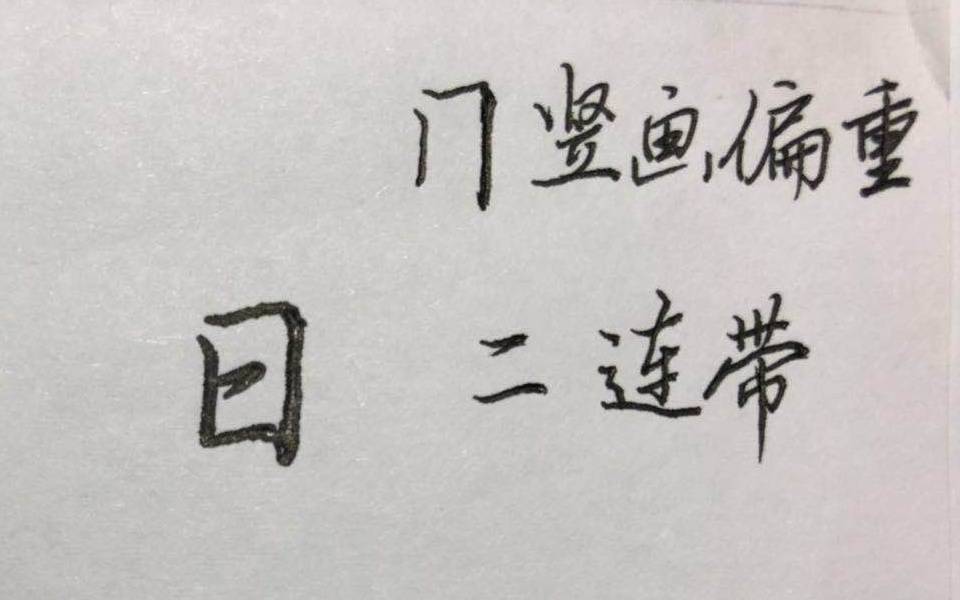 冂竖画偏重
日 二连带